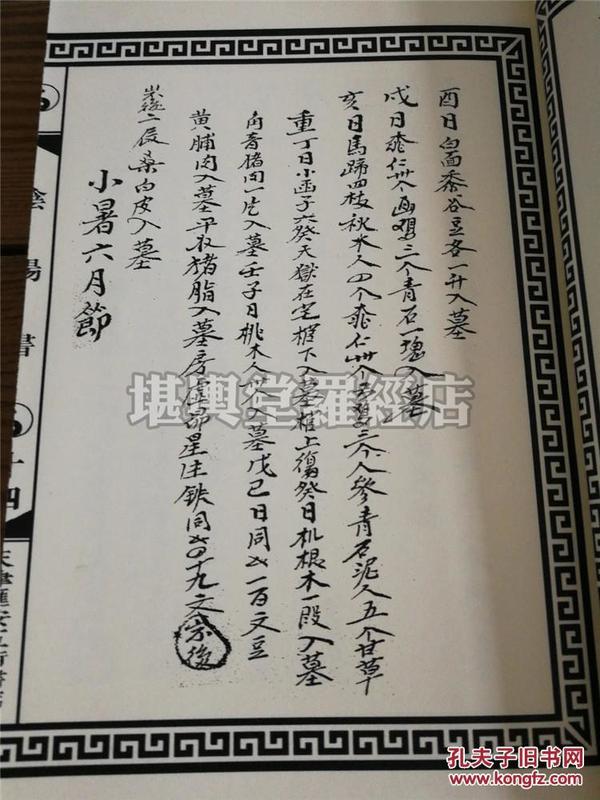 酉日白面黍谷豆各一升入墓
戌日桃仁卅个画鸡三个青石一塊入墓
亥日馬蹄四枝秋木人四个桃仁卅个画鸡三个人参青石泥人五个甘草
重丁日小函子六癸天獄在宅棺下入墓棺上傷癸日机根木一段入墓
角音猪肉一片入墓壬子日桃木人入墓戊己日同一百文豆
黄脯肉入墓平收猪脂入墓房虚昴星注鉄同四十九文
紫後
二辰桑白皮入墓
小暑六月節
陰陽書
十四
天津
堪輿堂羅經店
孔夫子旧书网
www.kongfz.com